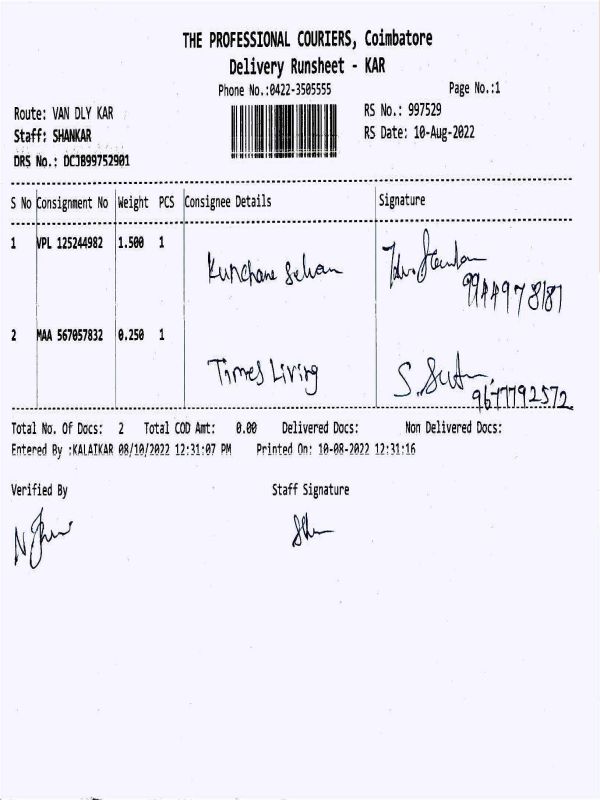 THE PROFESSIONAL COURIERS, Coimbatore
Delivery Runsheet - KAR
Phone No.:0422-3505555 Page No.:1
Route: VAN DLY KAR RS No.: 997529
Staff: SHANKAR RS Date: 10-Aug-2022
DRS No.: DCJB99752901
S No Consignment No Weight PCS Consignee Details Signature
1 VPL 125244982 1.500 1
9944978187
2 MAA 567057832 0.250 1
Times Living S.
9677792572
Total No. Of Docs: 2 Total COD Amt: 0.00 Delivered Docs: Non Delivered Docs:
Entered By :KALAIKAR 08/10/2022 12:31:07 PM Printed On: 10-08-2022 12:31:16
Verified By Staff Signature